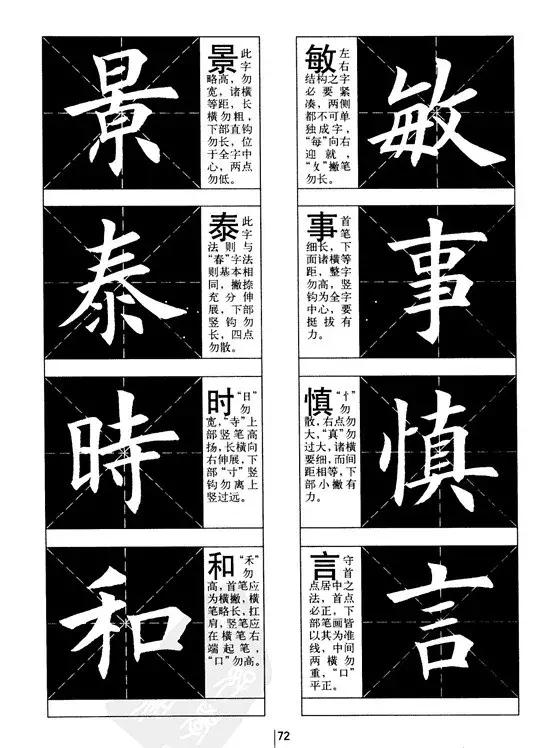 景
景 此
字
略高，勿
宽，诸横
等距，长
横勿粗，
下部直钩
勿长，位
于全字中
心，两点
勿低。
泰
泰 此
字
法则与
“春”字法
则基本相
同，撇捺
充分伸
展，下部
竖钩勿
长，四点
勿散。
時
时 “日”
勿
宽，“寺”上
部竖笔高
扬，长横向
右伸展，下
部“寸”竖
钩勿离上
竖过远。
和
和 “禾”
勿
高，首笔应
为横撇，横
笔略长，扛
肩，竖笔应
在横笔右
端起笔，
“口”勿高。
敏
敏 左
右
结构之字
必要紧
凑，两侧
都不可单
独成字，
“每”向右
迎就，
“攵”撇笔
勿长。
事
事 首
笔
细长，下
面诸横等
距，整字
勿高，竖
钩为全字
中心，要
挺拔有
力。
慎
慎 “忄”
勿
散，右点勿
大，“真”勿
过大，诸横
要细，而间
距相等，下
部小撇有
力。
言
言 守
首
点居中之
法，首点
必正，下
部笔画皆
以其为准
线，中间
两横勿
重，“口”
平正。
72